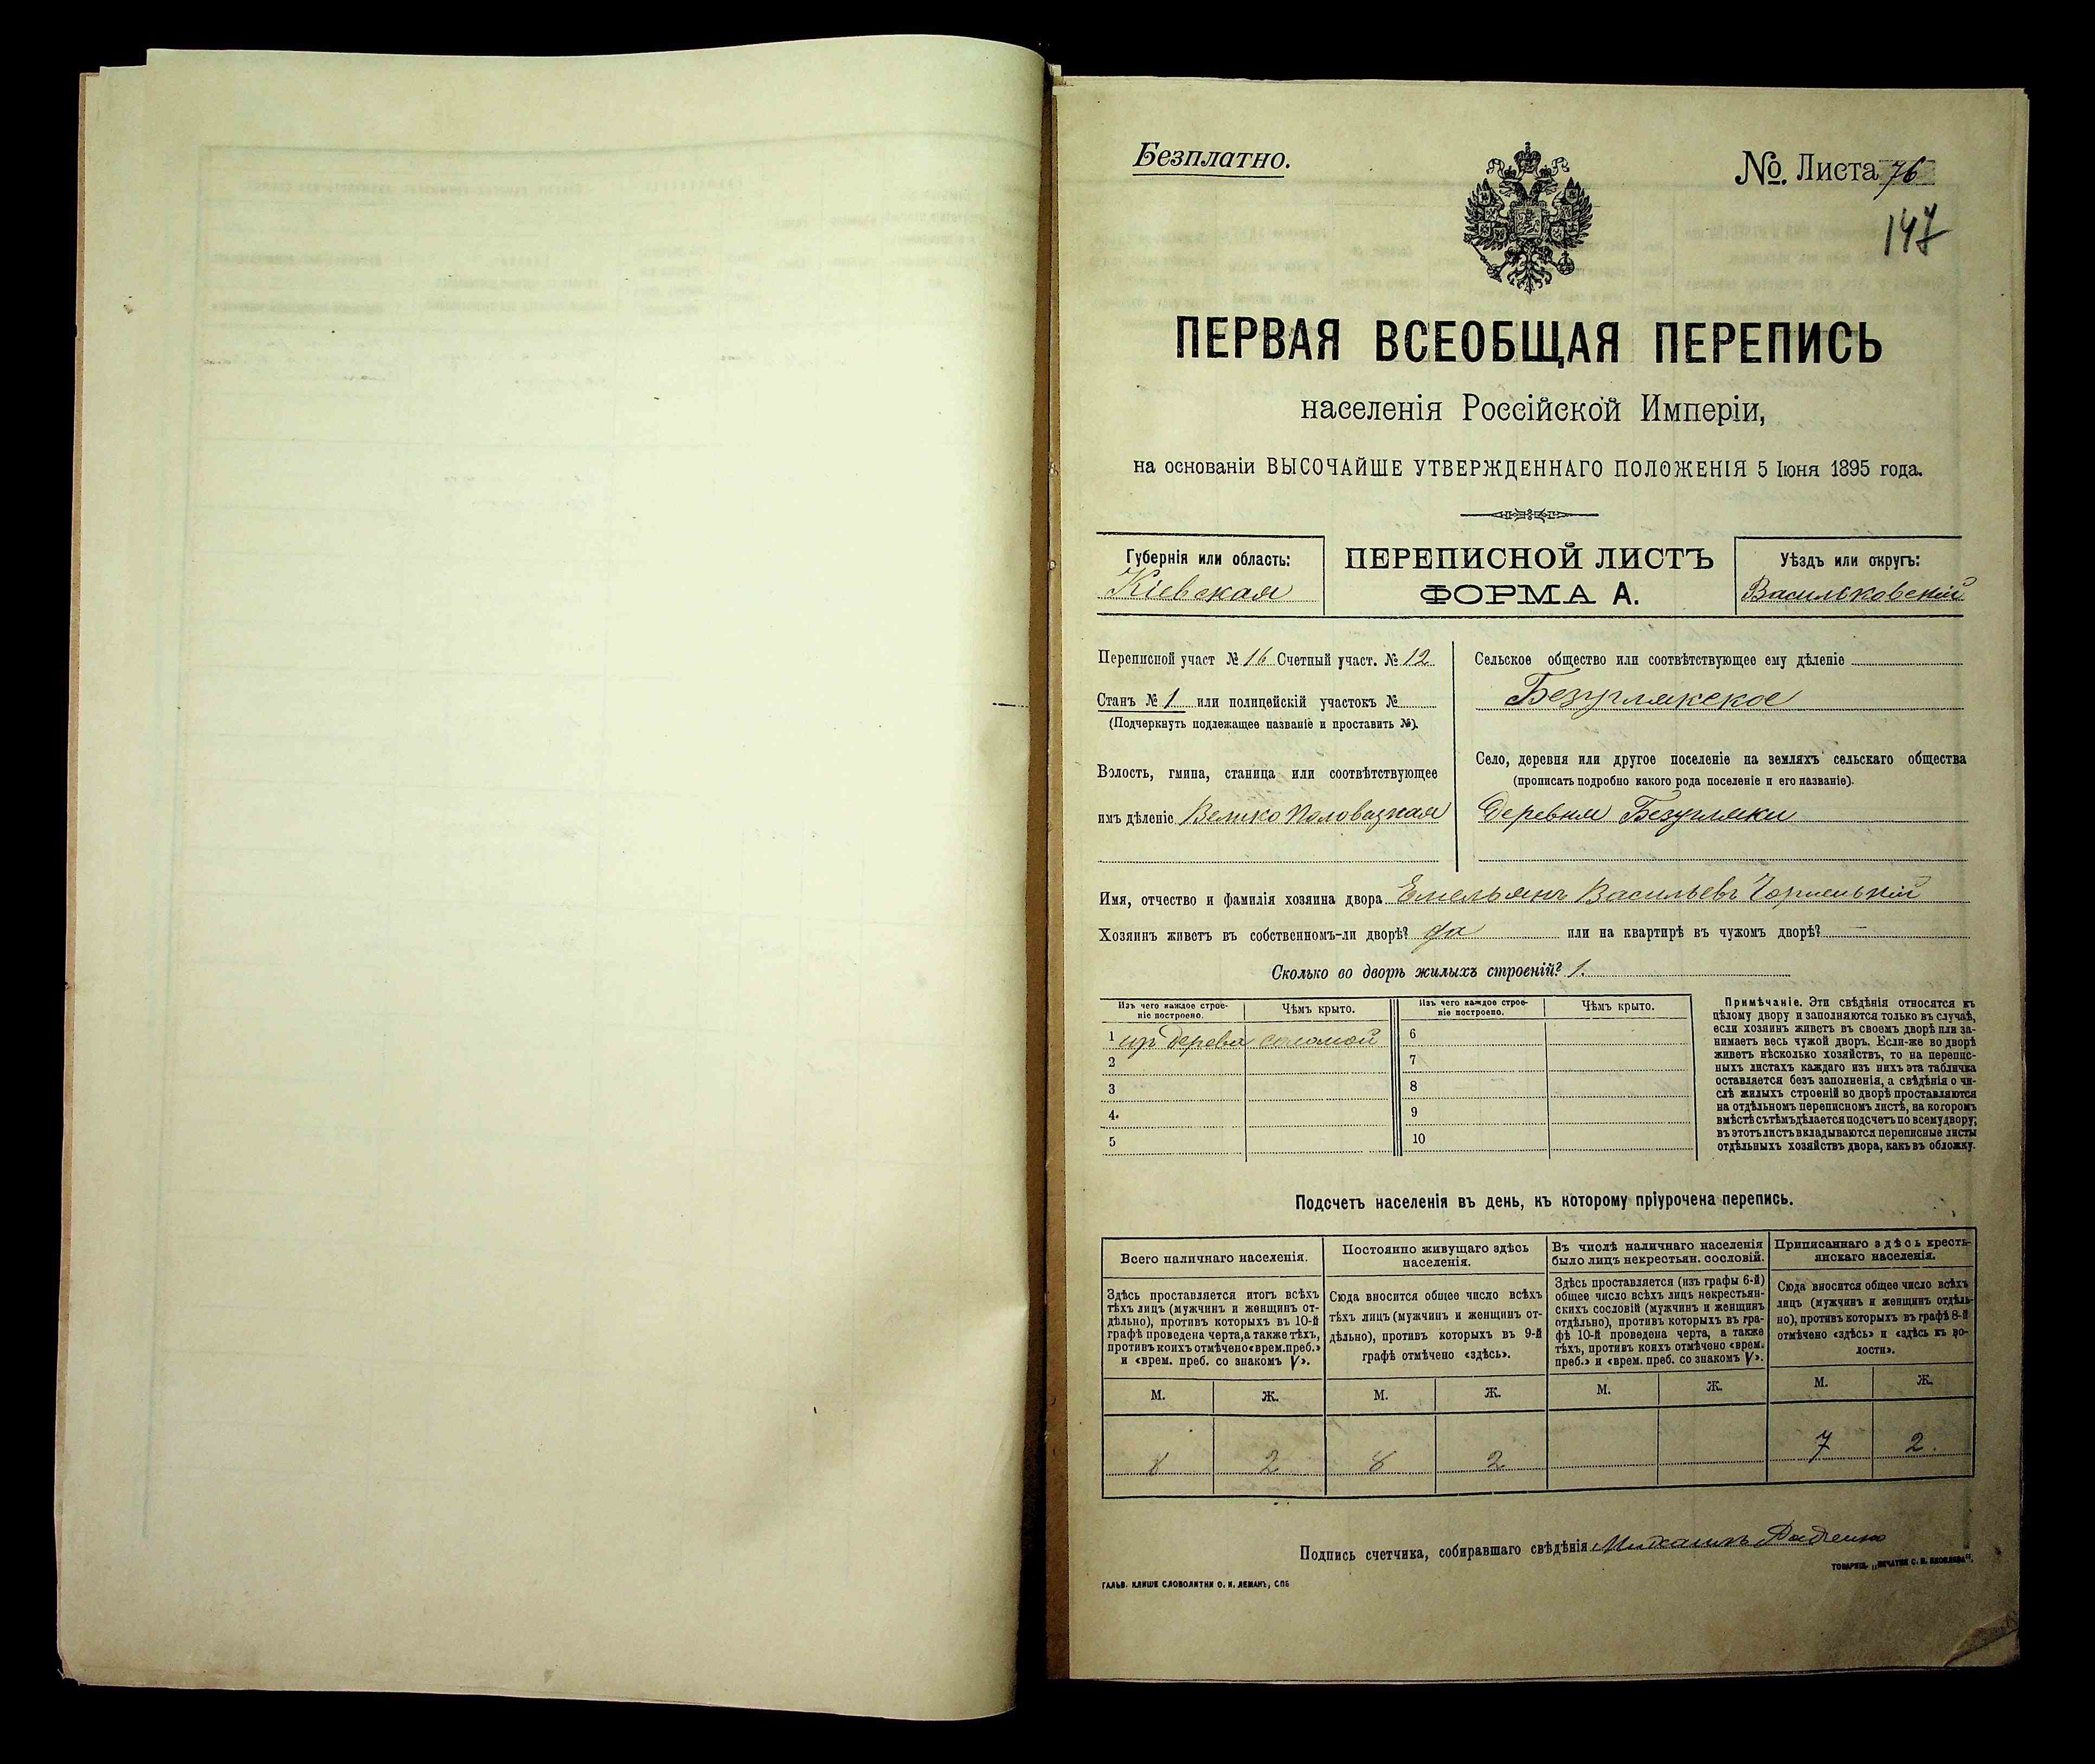 Безплатно.
№. Листа 76
147
ПЕРВАЯ ВСЕОБЩАЯ ПЕРЕПИСЬ
населенія Россійской Имперіи,
на основаніи ВЫСОЧАЙШЕ УТВЕРЖДЕННАГО ПОЛОЖЕНІЯ 5 Іюня 1895 года.
Губернія или область:
Кіевская
ПЕРЕПИСНОЙ ЛИСТЪ
ФОРМА А.
Уѣздъ или округъ:
Васильковскій
Переписной участ № 16 Счетный участ. № 12
Станъ № 1 или полицейскій участокъ №
(Подчеркнуть подлежащее названіе и проставить №).
Волость, гмина, станица или соотвѣтствующее
имъ дѣленіе Велико Половецкая
Сельское общество или соотвѣтствующее ему дѣленіе
Безуглякское
Село, деревня или другое поселеніе на земляхъ сельскаго общества
(прописать подробно какого рода поселеніе и его названіе).
Деревня Безугляки
Имя, отчество и фамилія хозяина двора Емельянъ Васильевъ
Хозяинъ живетъ въ собственномъ-ли дворѣ? да или на квартирѣ въ чужомъ дворѣ? —
Сколько во дворѣ жилыхъ строеній? 1.
Изъ чего каждое строе-
ніе построено.
Чѣмъ крыто.
Изъ чего каждое строе-
ніе построено.
Чѣмъ крыто.
1 изъ дерева соломой 6
2 7
3 8
4. 9
5 10
Примѣчаніе. Эти свѣдѣнія относятся къ
цѣлому двору и заполняются только въ случаѣ,
если хозяинъ живетъ въ своемъ дворѣ или за-
нимаетъ весь чужой дворъ. Если-же во дворѣ
живетъ нѣсколько хозяйствъ, то на перепис-
ныхъ листахъ каждаго изъ нихъ эта табличка
оставляется безъ заполненія, а свѣдѣнія о чи-
слѣ жилыхъ строеній во дворѣ проставляются
на отдѣльномъ переписномъ листѣ, на которомъ
вмѣстѣ съ тѣмъ дѣлается подсчетъ по всему двору;
въ этотъ листъ вкладываются переписные листы
отдѣльныхъ хозяйствъ двора, какъ въ обложку.
Подсчетъ населенія въ день, къ которому пріурочена перепись.
Всего наличнаго населенія.
Здѣсь проставляется итогъ всѣхъ
тѣхъ лицъ (мужчинъ и женщинъ от-
дѣльно), противъ которыхъ въ 10-й
графѣ проведена черта, а также тѣхъ,
противъ коихъ отмѣчено «врем. преб.»
и «врем. преб. со знакомъ V».
Постоянно живущаго здѣсь
населенія.
Сюда вносится общее число всѣхъ
тѣхъ лицъ (мужчинъ и женщинъ от-
дѣльно), противъ которыхъ въ 9-й
графѣ отмѣчено «здѣсь».
Въ числѣ наличнаго населенія
было лицъ некрестьян. сословій.
Здѣсь проставляется (изъ графы 6-й)
общее число всѣхъ лицъ некрестьян-
скихъ сословій (мужчинъ и женщинъ
отдѣльно), противъ которыхъ въ гра-
фѣ 10-й проведена черта, а также
тѣхъ, противъ коихъ отмѣчено «врем.
преб.» и «врем. преб. со знакомъ V».
Приписаннаго здѣсь кресть-
янскаго населенія.
Сюда вносится общее число всѣхъ
лицъ (мужчинъ и женщинъ отдѣль-
но), противъ которыхъ въ графѣ 8-й
отмѣчено «здѣсь» и «здѣсь къ во-
лости».
М. Ж. М. Ж. М. Ж. М. Ж.
8 2 8 2 7 2.
Подпись счетчика, собиравшаго свѣдѣнія Михаилъ
ТОВАРИЩ. „ПЕЧАТНЯ С. П. ЯКОВЛЕВА“.
ГАЛЬВ. КЛИШЕ СЛОВОЛИТНИ О. И. ЛЕМАНЪ, СПБ